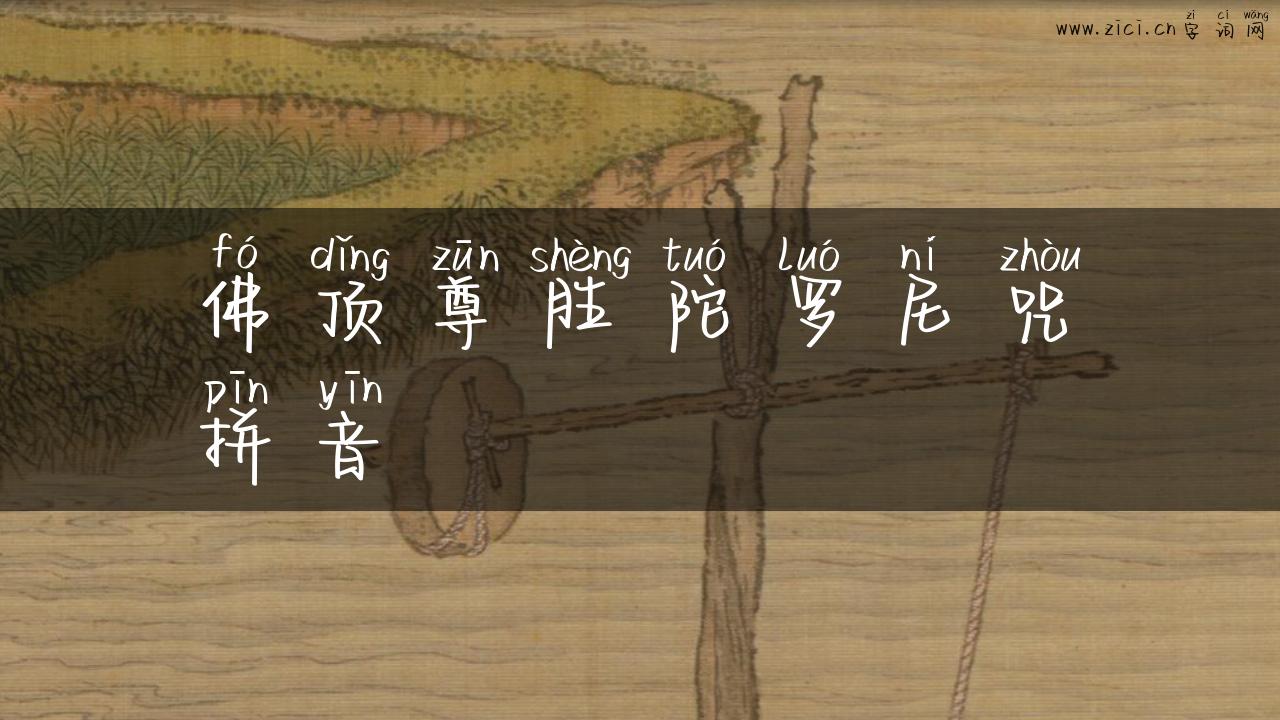 zì cí wǎng
www.zici.cn 字 词 网
fó dǐng zūn shèng tuó luó ní zhòu
佛 顶 尊 胜 陀 罗 尼 咒
pīn yīn
拼 音